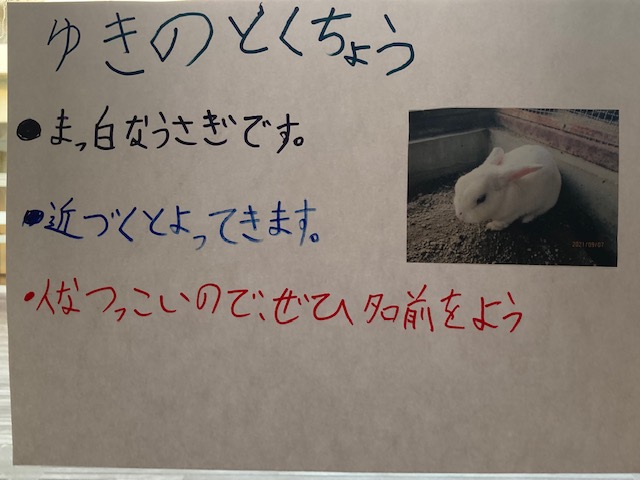 ゆきのとくちょう
●まっ白なうさぎです。
●近づくとよってきます。
•人なつっこいので、ぜひ名前をよう
2021/09/01